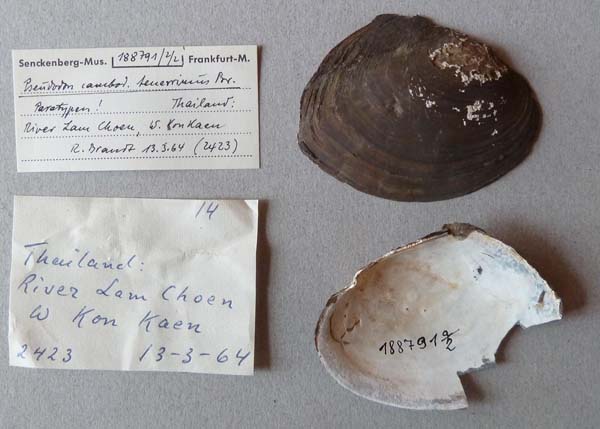 Senckenberg-Mus. 188791/2/2 Frankfurt-M.
Pseudodon cambod. tenerrimus Br.
Paratypen! Thailand:
River Lam Choen, W. Kon Kaen
R. Brandt 13.3.64 (2423)
14
Thailand:
River Lam Choen
W Kon Kaen
2423 13-3-64
188791 2/2